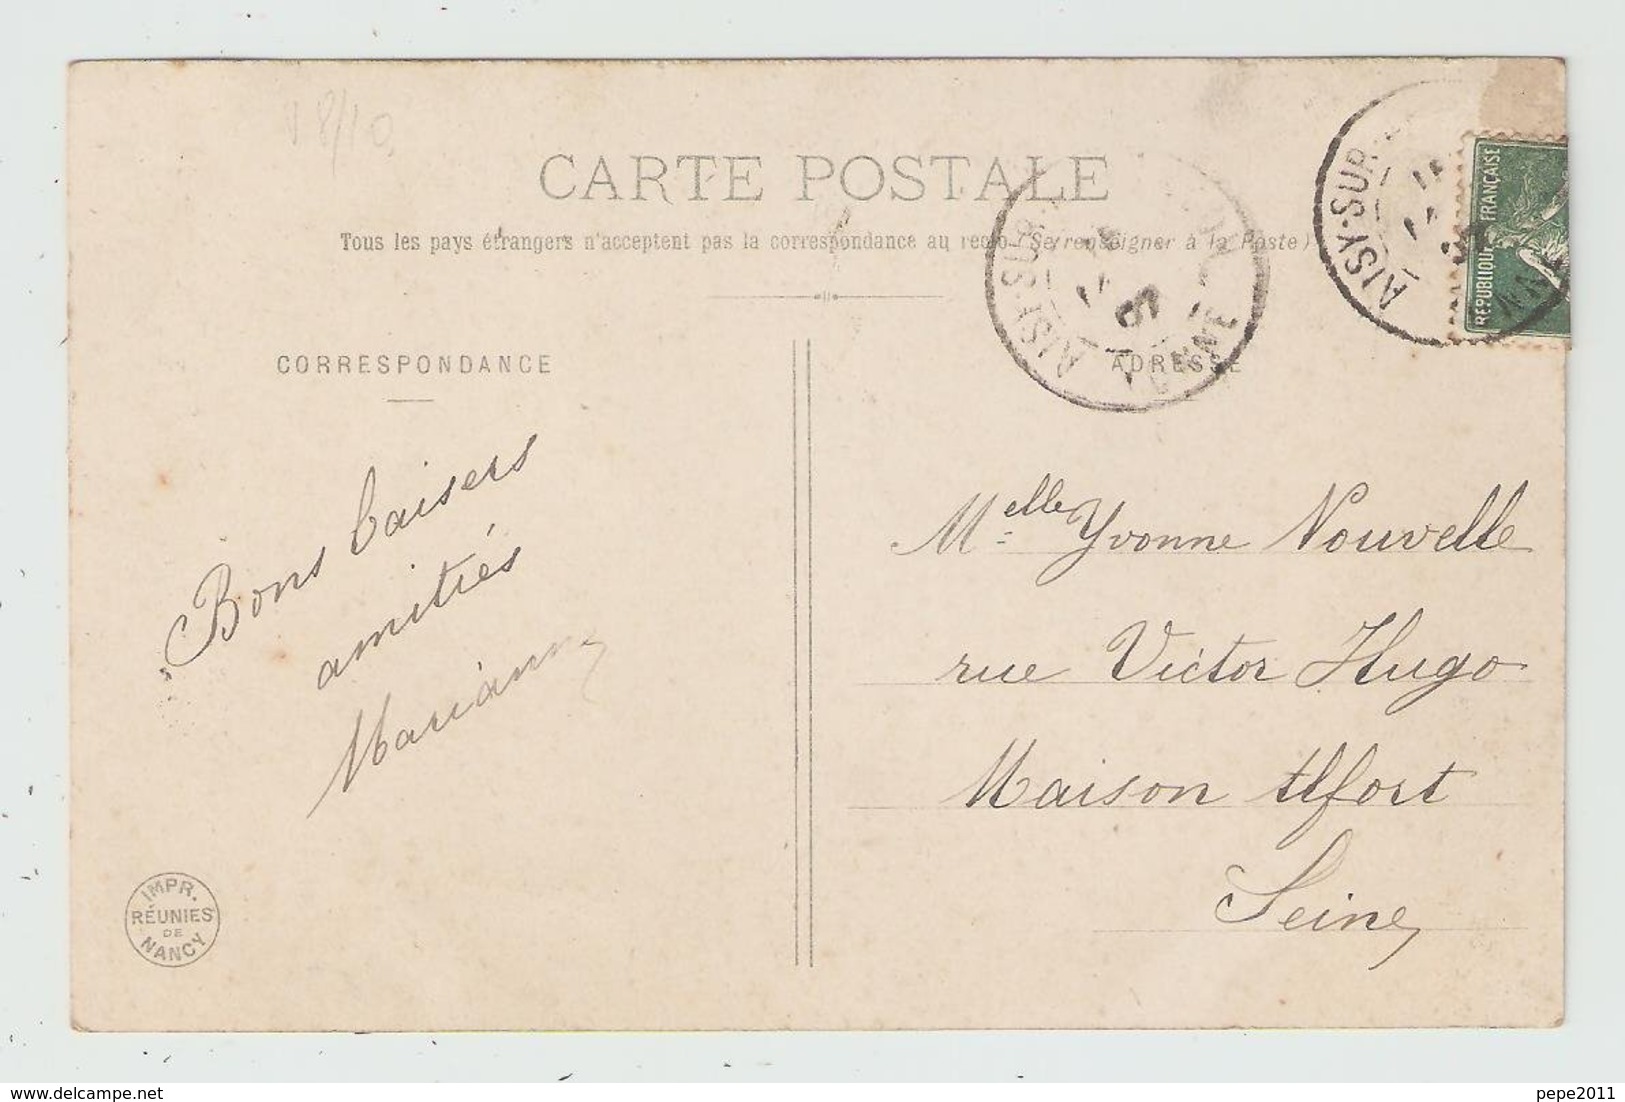 CARTE POSTALE
Tous les pays étrangers n'acceptent pas la correspondance au recto (Se renseigner à la Poste)
CORRESPONDANCE
Bons baisers
amitiés
Marianne
IMPR.
RÉUNIES
DE
NANCY
AISY-SUR-
YONNE
07
ADRESSE
AISY-SUR-
REPUBLIQUE FRANÇAISE
Melle Yvonne Nouvelle
rue Victor Hugo
Maison Alfort
Seine
pepe2011